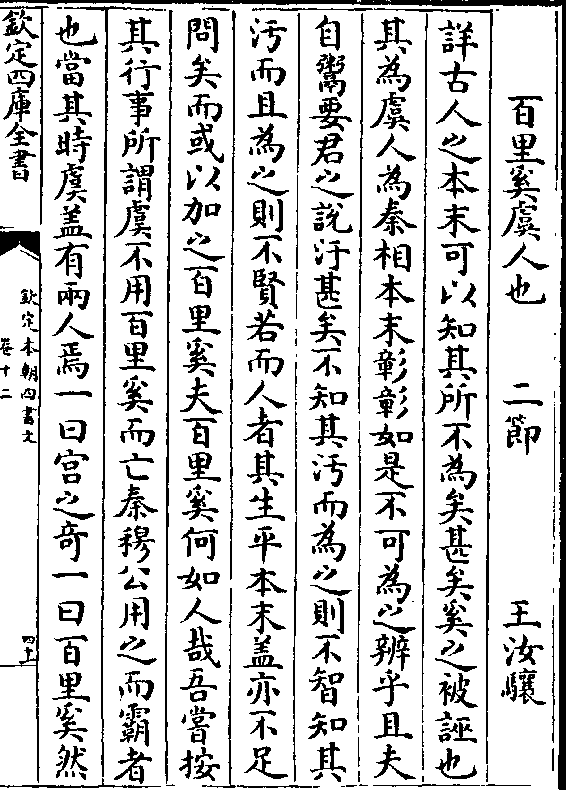 百里奚虞人也　二節　王汝驤
詳古人之本末可以知其所不為矣甚矣奚之被誣也
其為虞人為秦相本末彰彰如是不可為之辨乎且夫
自鬻要君之說汙甚矣不知其汚而為之則不智知其
汚而且為之則不賢若而人者其生平本末蓋亦不足
問矣而或以加之百里奚夫百里奚何如人哉吾嘗按
其行事所謂虞不用百里奚而亡秦穆公用之而霸者
也當其時虞盖有兩人焉一曰宫之奇一曰百里奚然
欽定四庫全書
欽定本朝四書文
卷十二